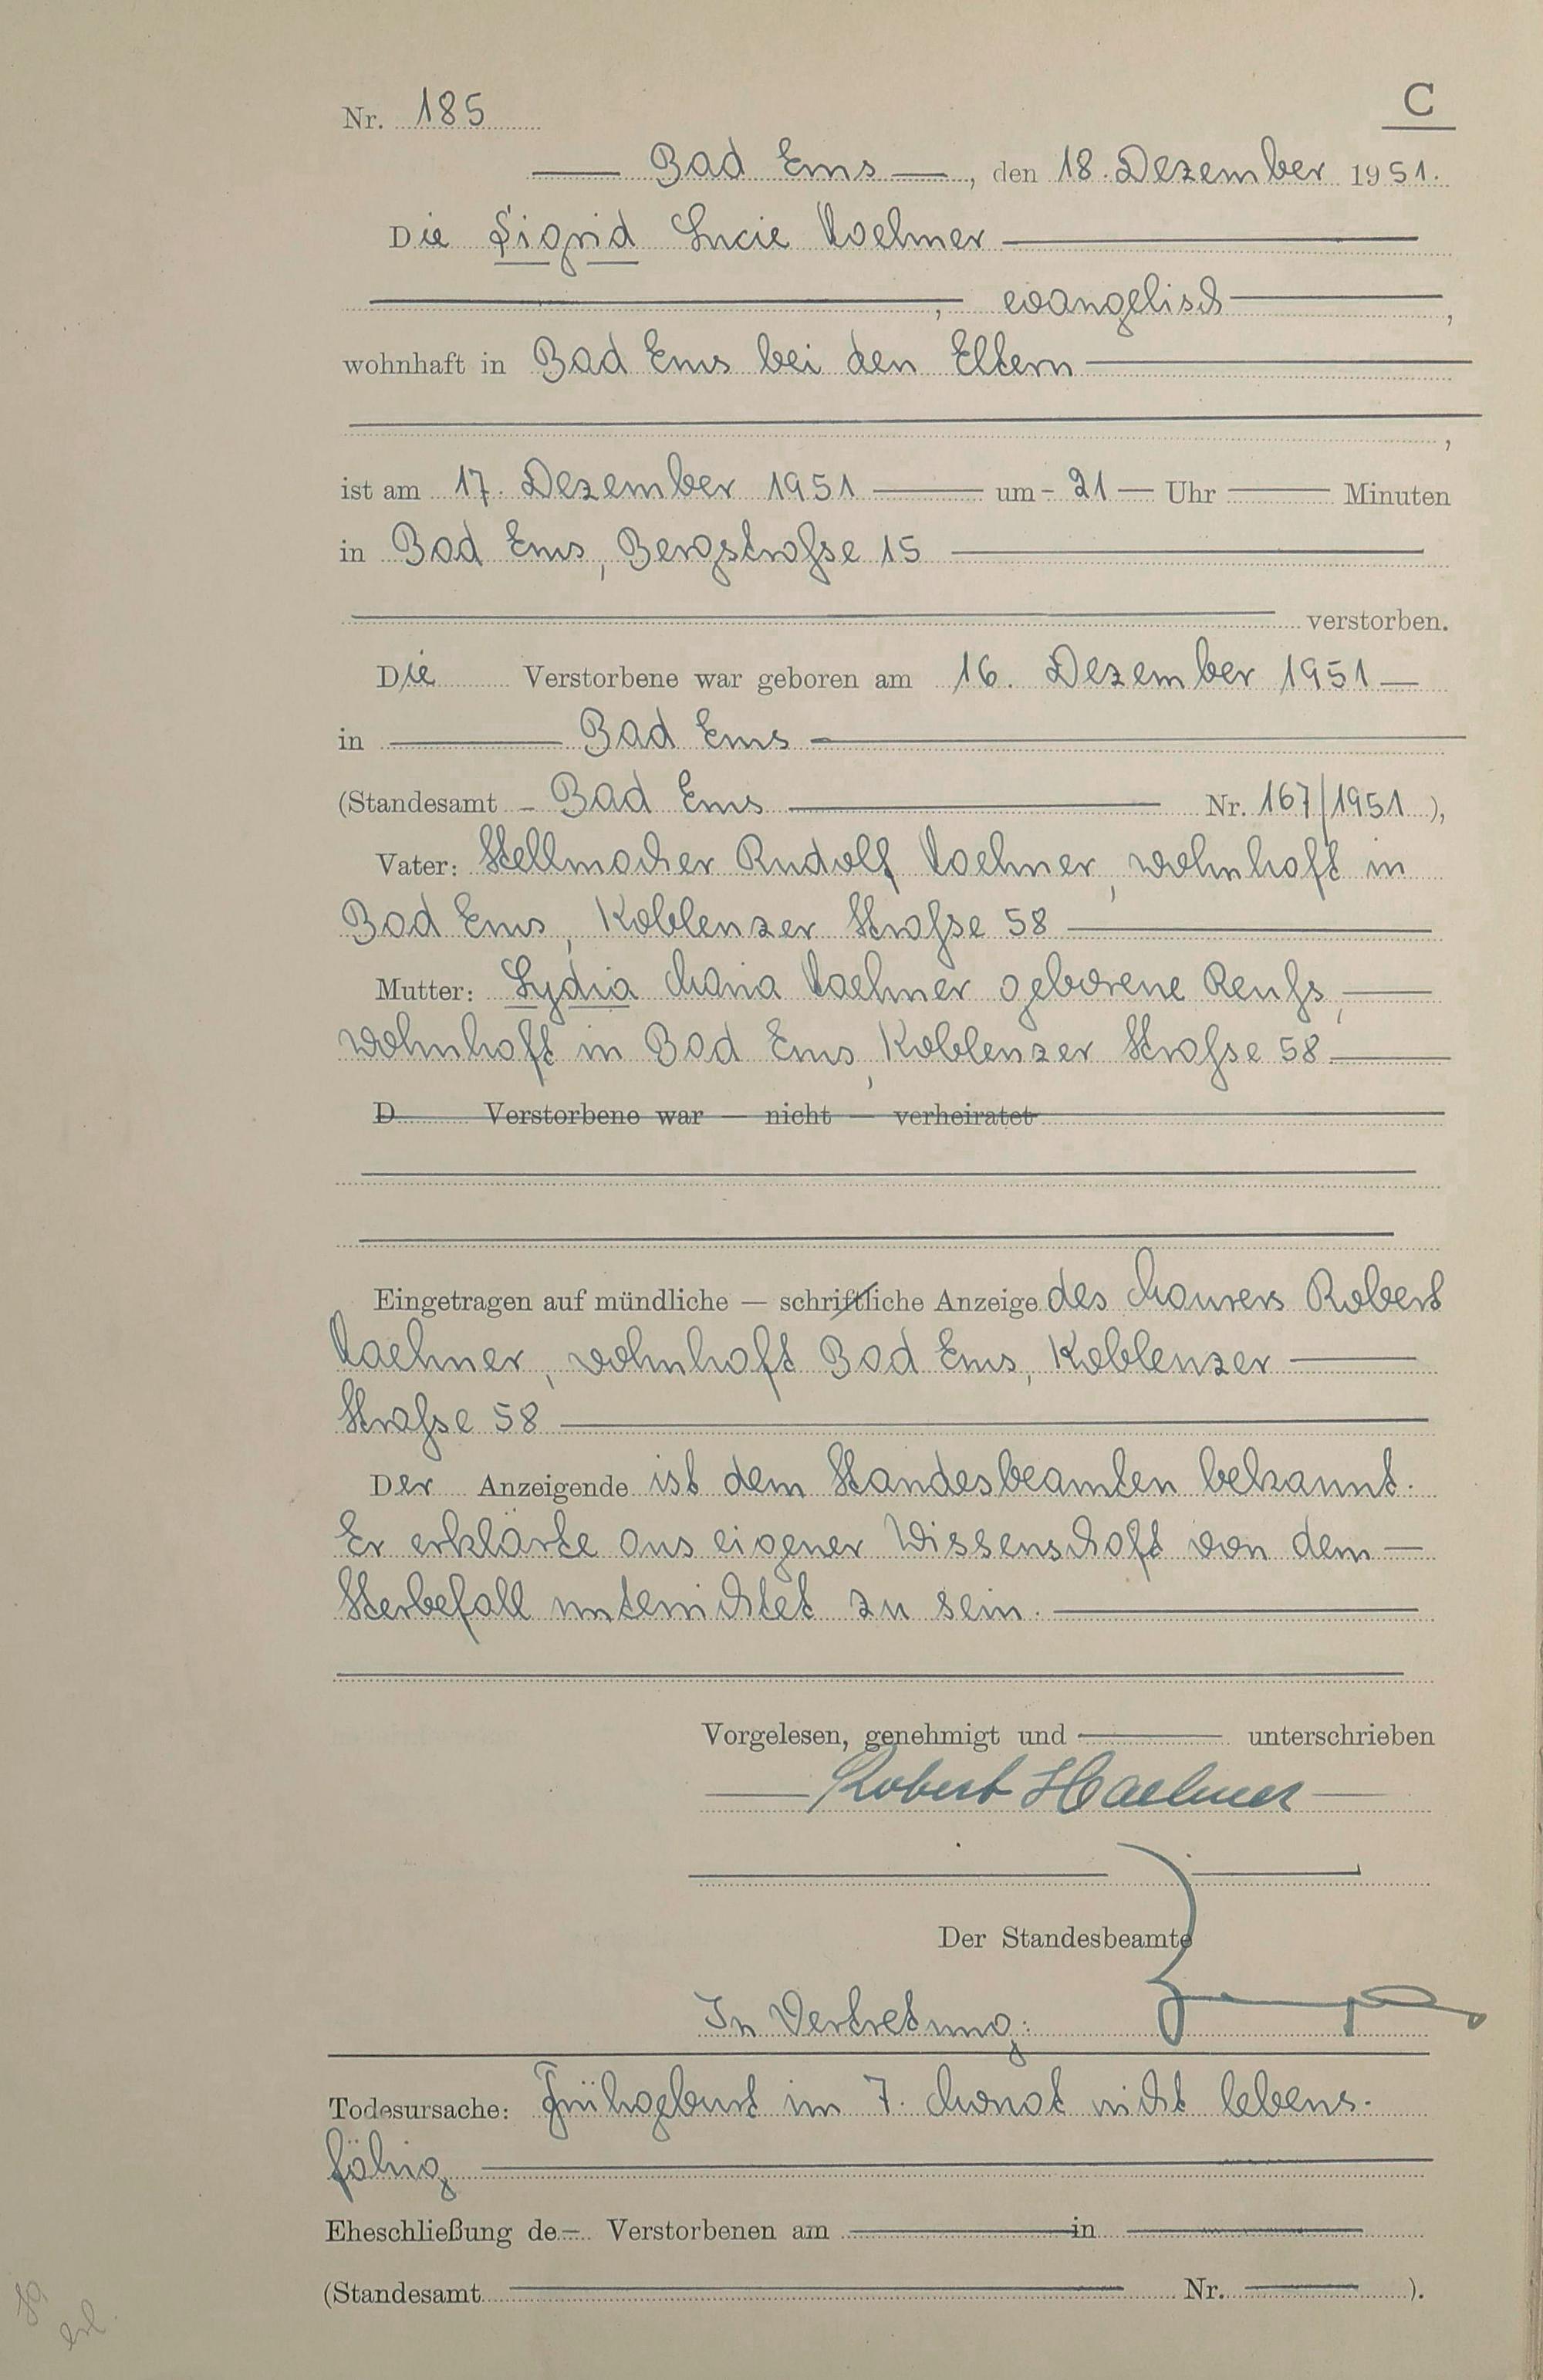 Nr. 185
C
Bad Ems, den 18. Dezember 1951.
Die Sigrid Lucie Haehner
, evangelisch,
wohnhaft in Bad Ems bei den Eltern
,
ist am 17. Dezember 1951 um 21 Uhr Minuten
in Bad Ems, Bergstraſse 15
verstorben.
Die Verstorbene war geboren am 16. Dezember 1951
in Bad Ems
(Standesamt Bad Ems Nr. 167/1951),
Vater: Stellmacher Rudolf Haehner, wohnhaft in
Bad Ems, Koblenzer Straſse 58
Mutter: Lydia Maria Haehner geborene Reuſs,
wohnhaft in Bad Ems, Koblenzer Straſse 58
D Verstorbene war — nicht — verheiratet
Eingetragen auf mündliche — schriftliche Anzeige des Maurers Robert
Haehner, wohnhaft Bad Ems, Koblenzer
Straſse 58
Der Anzeigende ist dem Standesbeamten bekannt.
Er erklärte aus eigener Wissenschaft von dem
Sterbefall unterrichtet zu sein.
Vorgelesen, genehmigt und unterschrieben
Robert Haehner
Der Standesbeamte
In Vertretung:
Todesursache: Frühgeburt im 7. Monat nicht lebens-
fähig
Eheschließung de Verstorbenen am in
(Standesamt Nr. ).
erl.